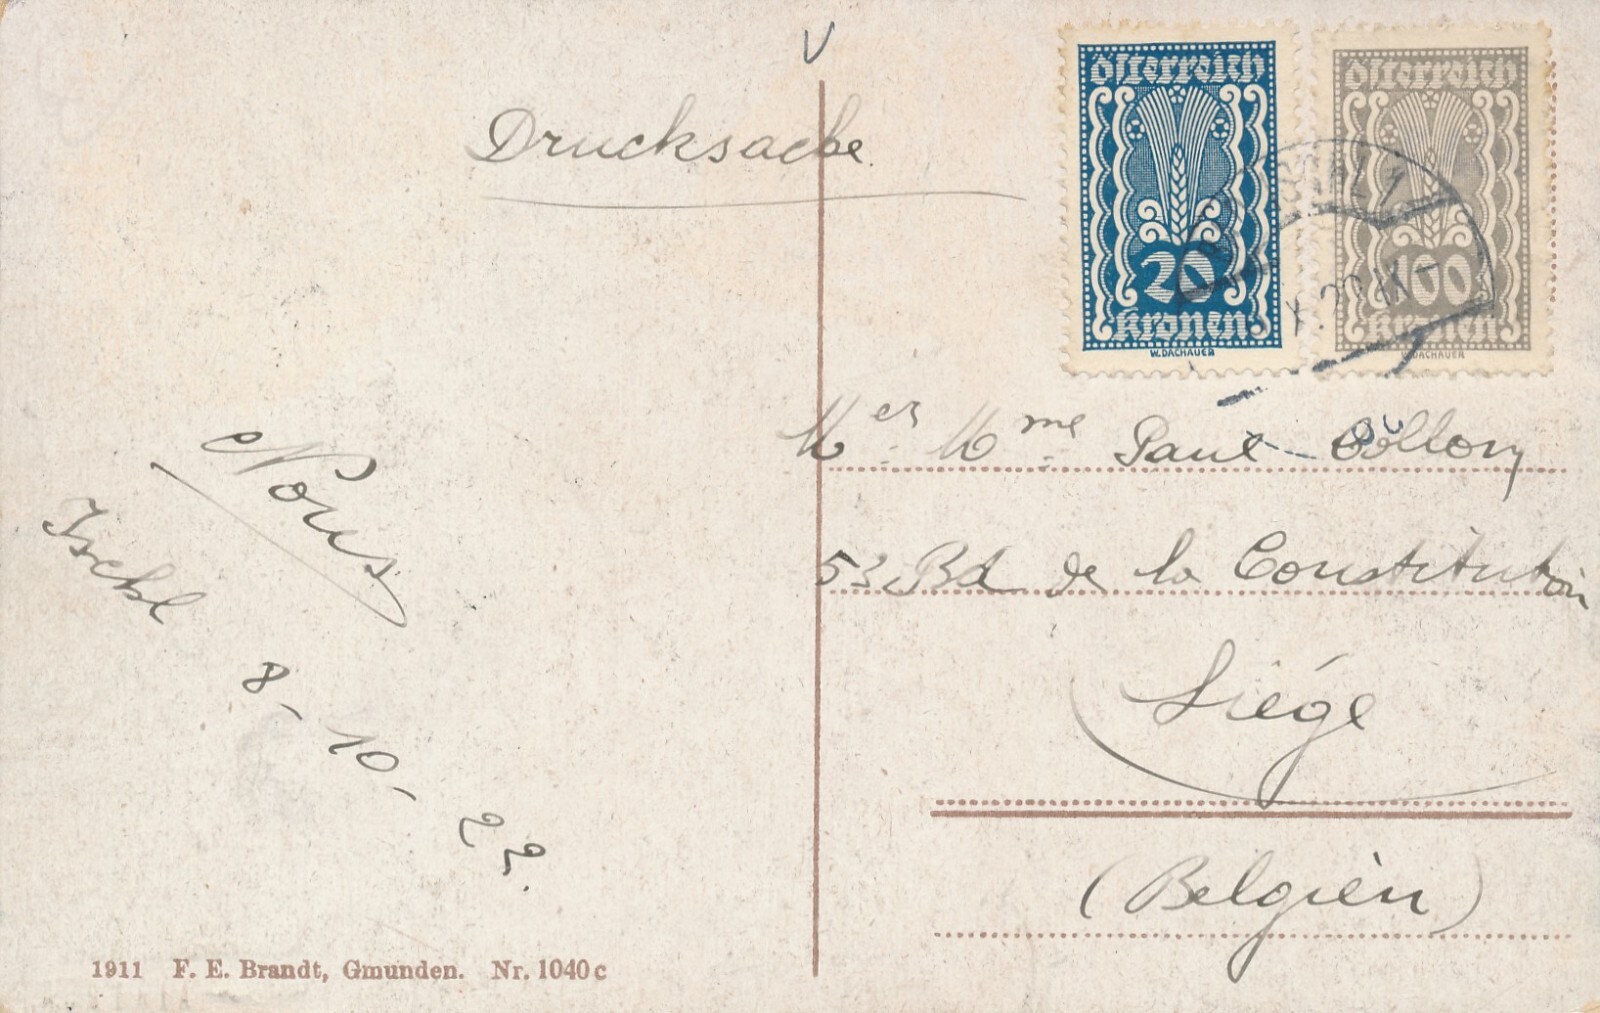 Drucksache
österreich
20
kronen
W. DACHAUER
österreich
100
kronen
W. DACHAUER
Mer. Mme. Paul
53 Bd de la Constitution
Liége
(Belgien)
Nous
Ischl 8-10-22.
1911 F. E. Brandt, Gmunden. Nr. 1040c